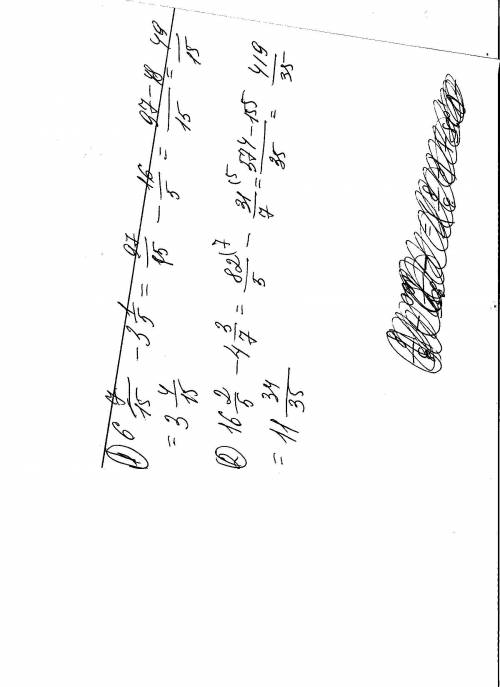 ① 6 7/15 - 3 1/5 = 97/15 - 16/5 = 97-48/15 = 49/15
= 3 4/15
② 16 2/5 - 4 3/7 = 82(7/5 - 31(5/7 = 574-155/35 = 419/35
= 11 34/35